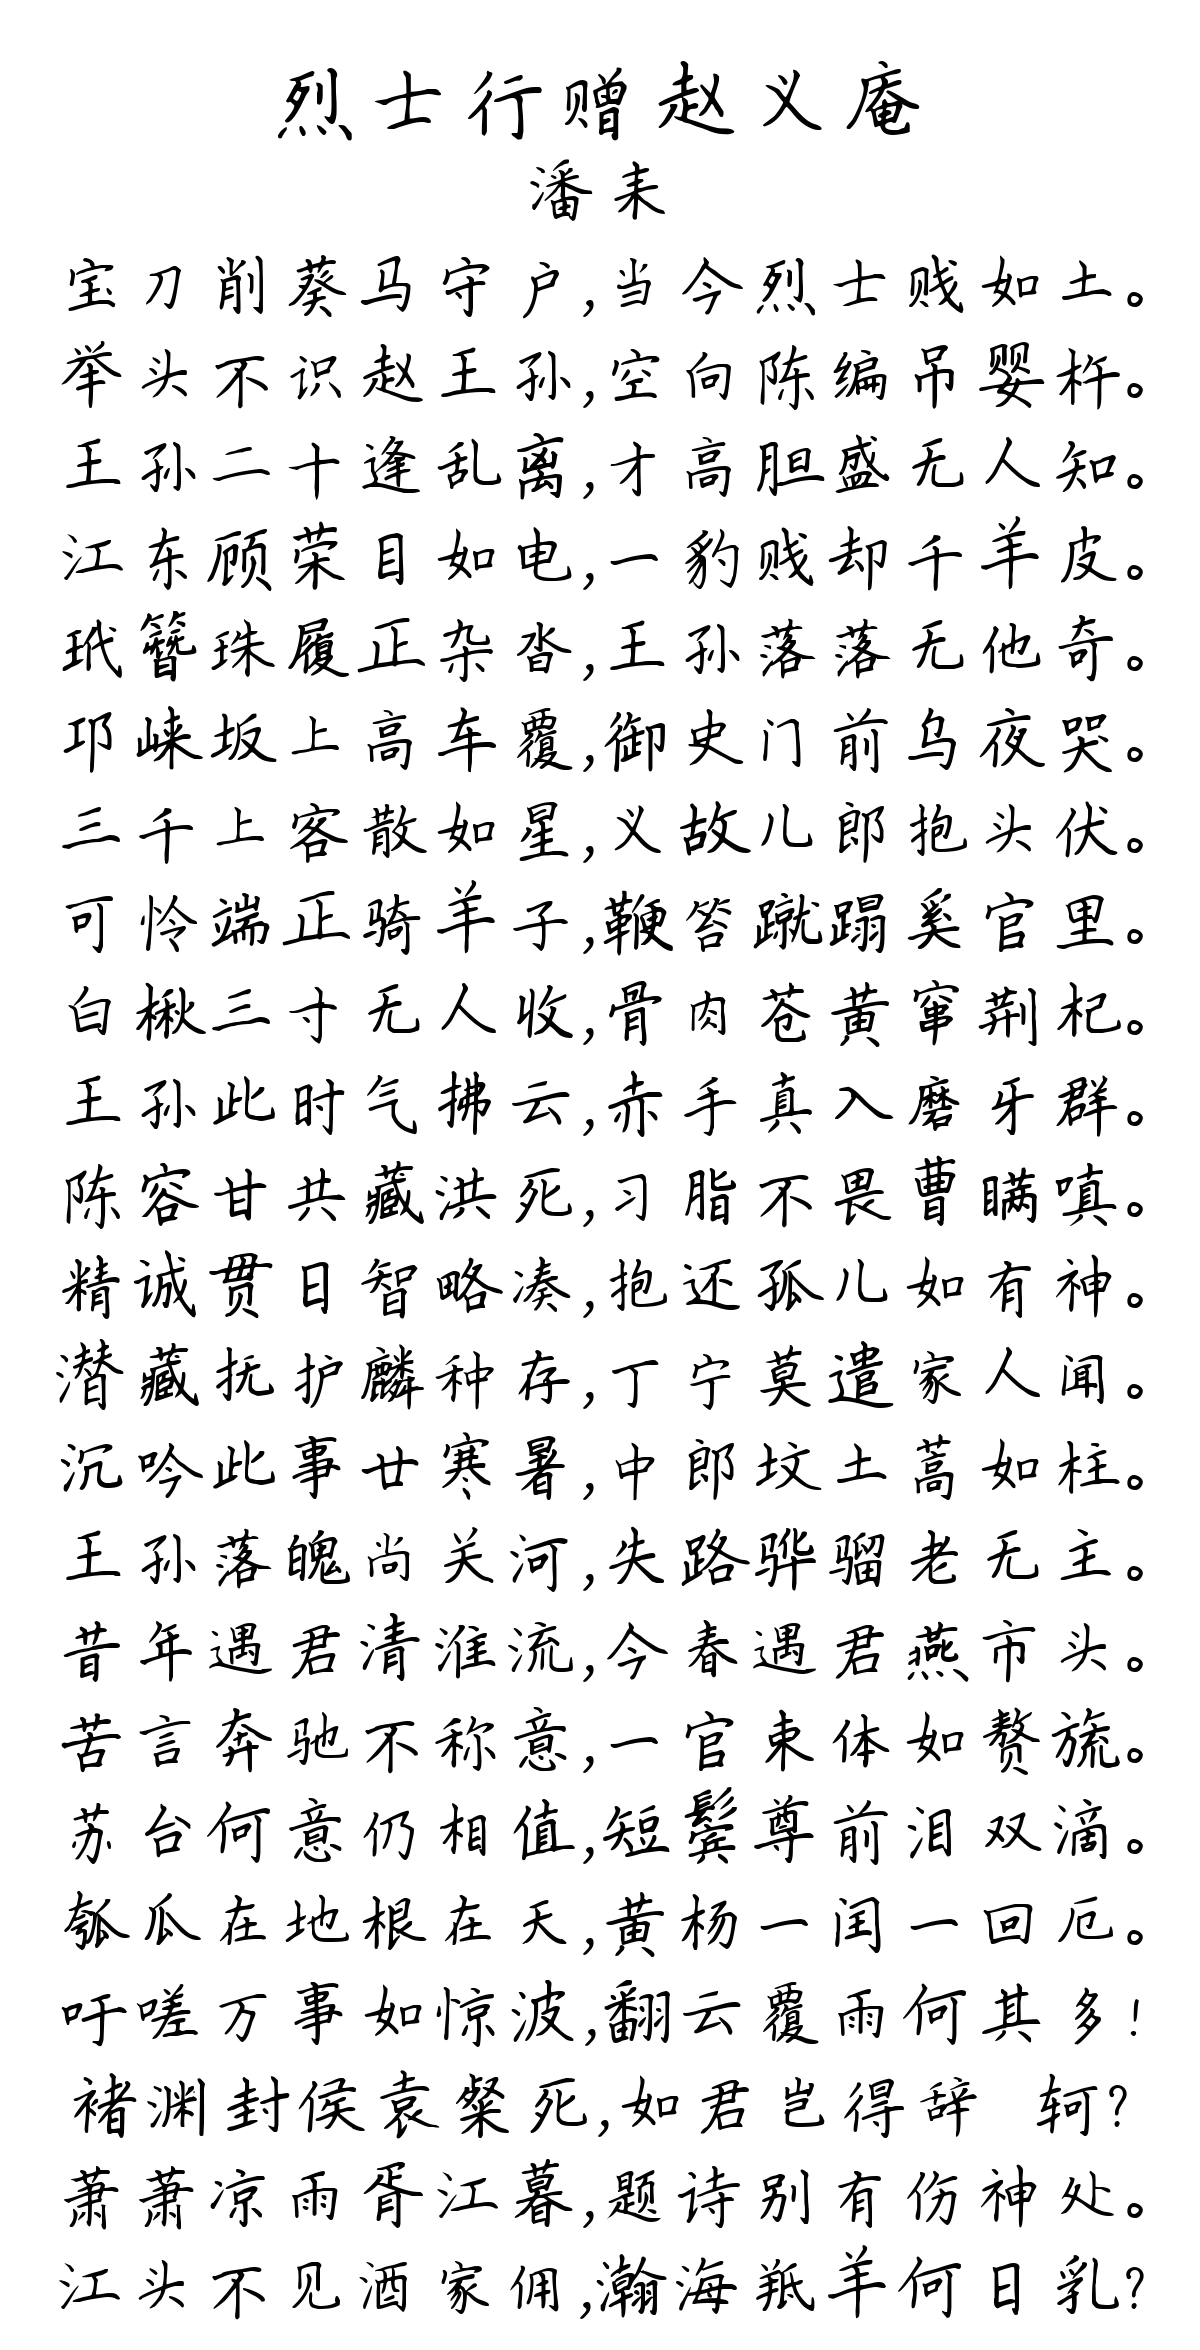 烈士行赠赵义庵
潘耒
宝刀削葵马守户,当今烈士贱如土。
举头不识赵王孙,空向陈编吊婴杵。
王孙二十逢乱离,才高胆盛无人知。
江东顾荣目如电,一豹贱却千羊皮。
玳簪珠履正杂沓,王孙落落无他奇。
邛崃坂上高车覆,御史门前乌夜哭。
三千上客散如星,义故儿郎抱头伏。
可怜端正骑羊子,鞭笞蹴蹋奚官里。
白楸三寸无人收,骨肉苍黄窜荆杞。
王孙此时气拂云,赤手真入磨牙群。
陈容甘共藏洪死,习脂不畏曹瞒嗔。
精诚贯日智略凑,抱还孤儿如有神。
潜藏抚护麟种存,丁宁莫遣家人闻。
沉吟此事廿寒暑,中郎坟土蒿如柱。
王孙落魄尚关河,失路骅骝老无主。
昔年遇君清淮流,今春遇君燕市头。
苦言奔驰不称意,一官束体如赘旒。
苏台何意仍相值,短鬓尊前泪双滴。
瓠瓜在地根在天,黄杨一闰一回厄。
吁嗟万事如惊波,翻云覆雨何其多!
褚渊封侯袁粲死,如君岂得辞 轲?
萧萧凉雨胥江暮,题诗别有伤神处。
江头不见酒家佣,瀚海羝羊何日乳?